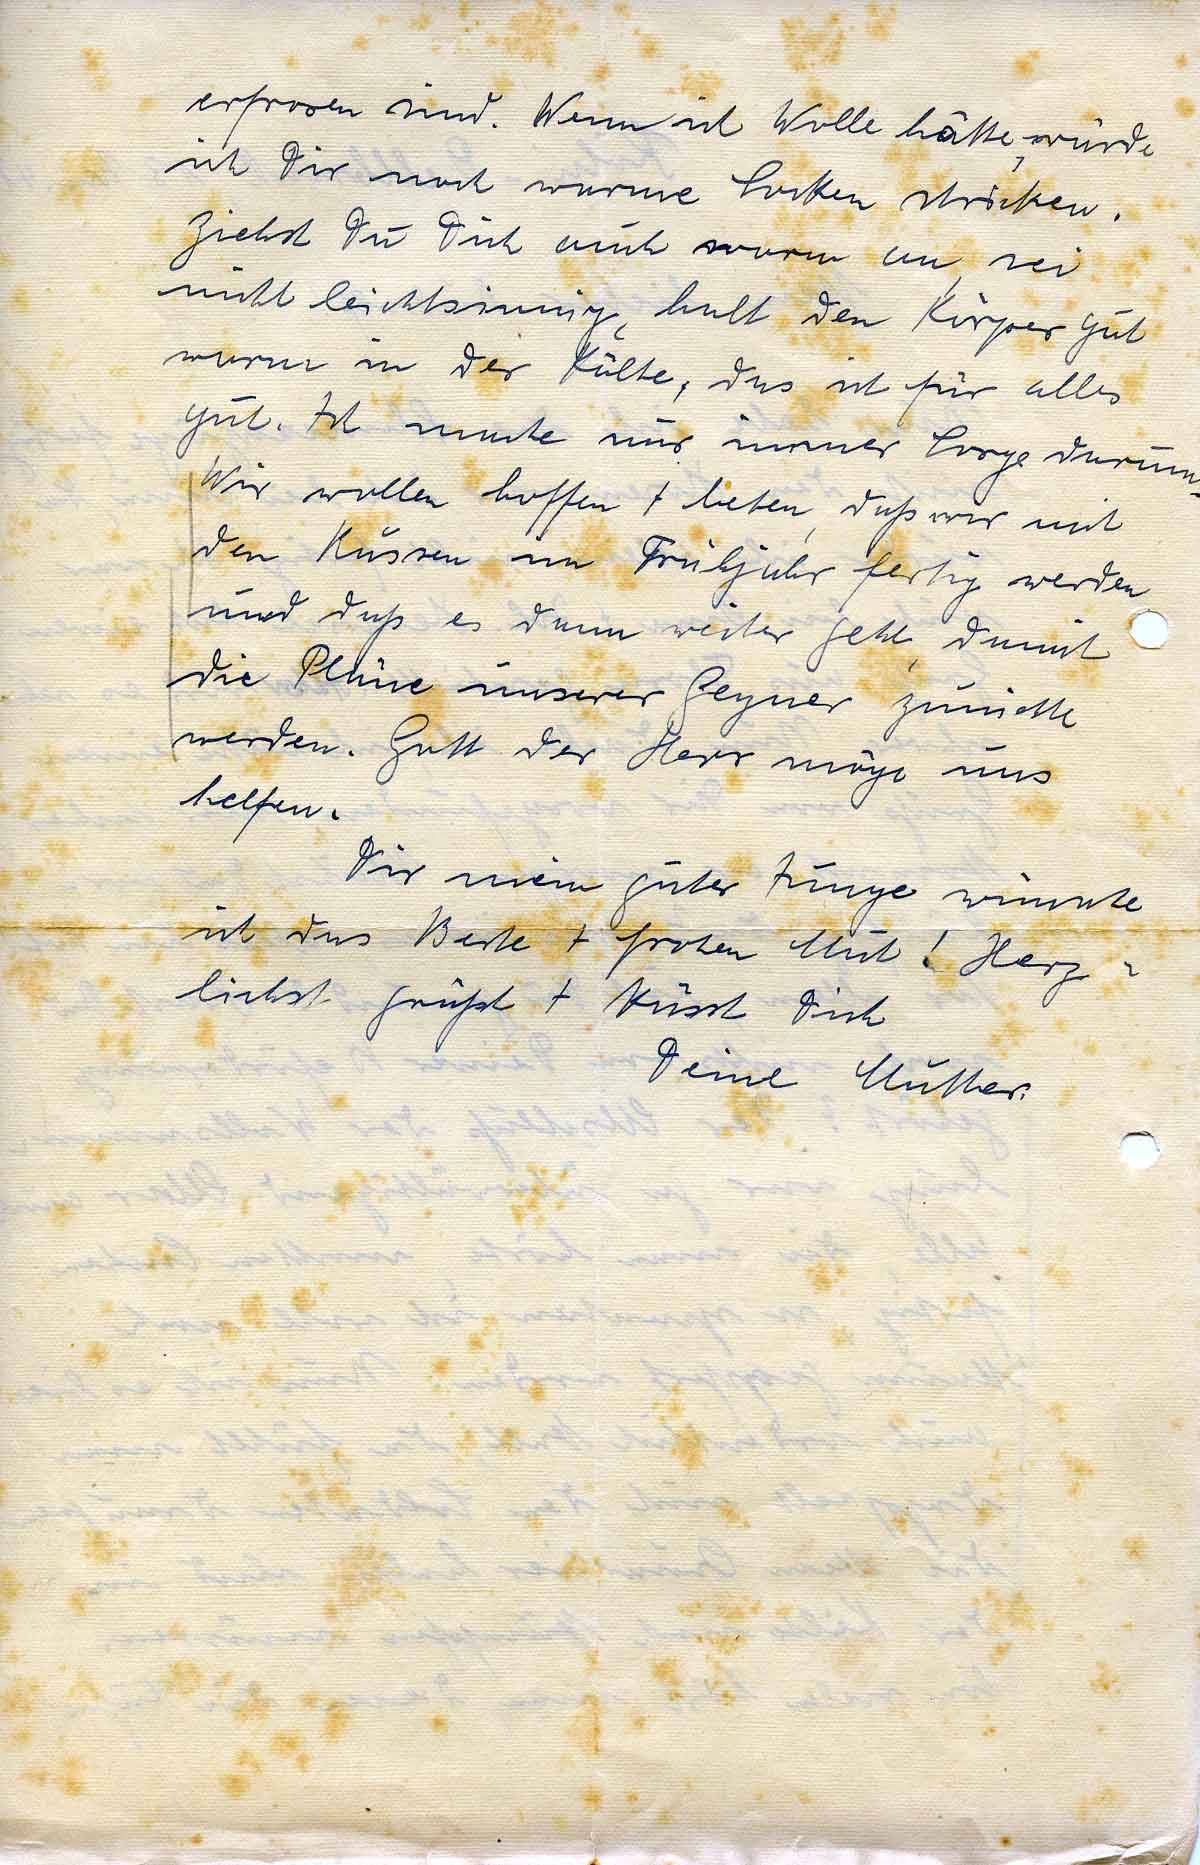 erfroren sind. Wenn ich Wolle hätte, würde
ich Dir noch warme Socken stricken.
Ziehst Du Dich auch warm an, sei
nicht leichtsinnig, halt den Körper gut
warm in der Kälte, das ist für alles
gut. Ich mache mir immer Sorge darum.
Wir wollen hoffen + beten, daß wir mit
den Russen im Frühjahr fertig werden
und daß es dann weiter geht, damit
die Pläne unserer Gegner zunichte
werden. Gott der Herr möge uns
helfen.
Dir mein guter Junge wünsche
ich das Beste + frohen Mut! Herz-
lichst grüßt + küsst Dich
Deine Mutter.